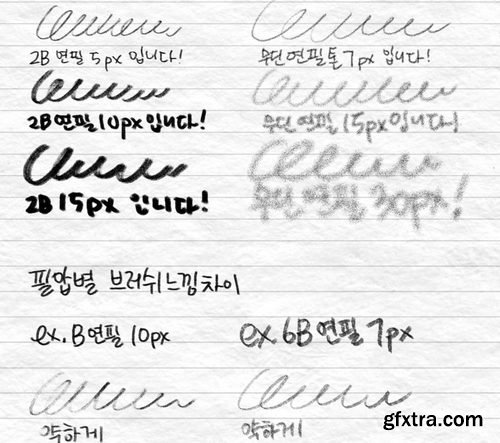 2B 연필 5px 입니다!
무딘연필톤 7px 입니다!
2B연필10px입니다!
무딘 연필 15px입니다!
2B 15px 입니다!
무딘 연필 30px!
필압별 브러쉬느낌차이
ex. B연필 10px
ex. 6B연필 7px
약하게
약하게
gfxtra.com